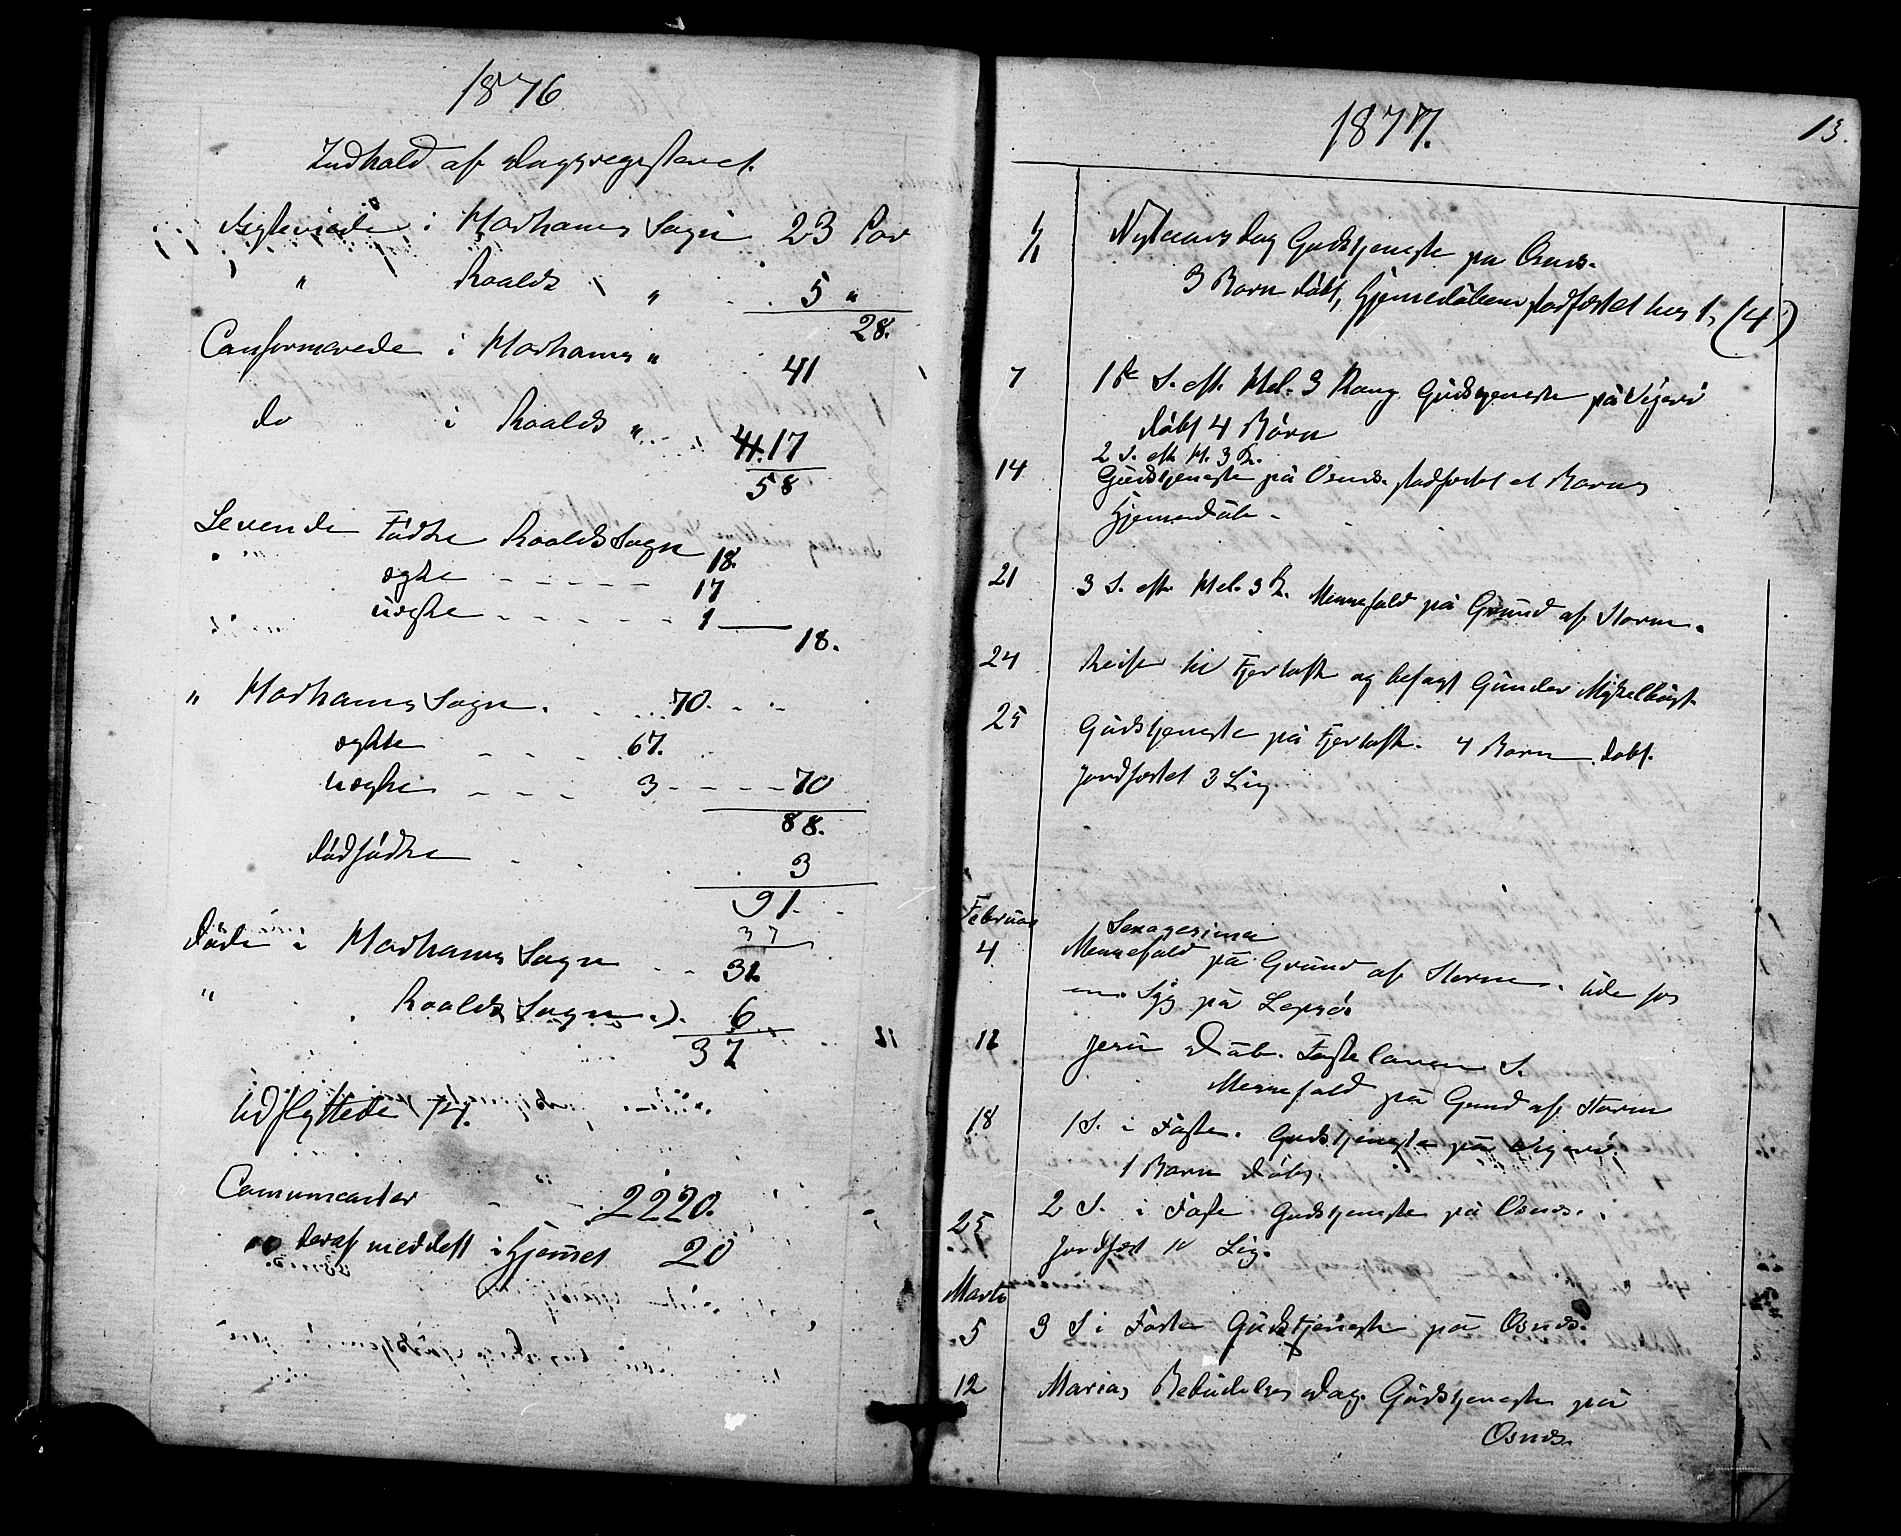 1876
Indhold af Dagsregisteret.
Ægteviede i Harhams Sogn 23 Par
" Roalds " 5 "
28.
Confirmerede i Harhams " 41
do i Roalds " 17
58
Levende Fødte Roalds Sogn 18.
ægte - - - - - 17
uægte - - - - - - 1
18.
" Harhams Sogn. 70.
ægte 67.
uægte - - - - 3 - - - - 70
88.
dødfødte 3
91.
37
Døde i Harhams Sogn 31.
" Roalds Sogn 6
37
Udflyttede 14.
Communicanter 2220.
deraf meddelt i Hjemmet 20
1877. 13.
1/1 Nytaarsdag Gudstjeneste paa Osnæs.
3 Børn døbt, Hjemedåben stadfæstet hos 1, (4)
7 1ste S. eft. Hel. 3 Kong. Gudstjeneste på Vigerø
døbt 4 Børn
2 S. eft H. 3 K.
14 Gudstjeneste på Osnæs. stadfæstet et Barns
Hjemedåb -
21 3 S. eft. Hel. 3 K. Messefald på Grund af Storm.
24 Reiste til Fjertoft og besøgt Gunder Myklebust
25 Gudstjeneste på Fjertoft. 4 Børn døbt.
Jordfæstet 3 Lig
Februar Sexagesima
4 Messefald på Grund af Storm. ude hos
en Syg på Lepsø
11 Jesu Dåb. Fastelavens S.
Messefald på Grund af Storm
18 1 S. i Faste. Gudstjeneste på Vigerø.
1 Barn døbt.
25 2 S. i Faste Gudstjeneste på Osnæs.
Jordfæst Lig.
Marts
5 3 S i Faste Gudstjeneste på Osnæs.
12 Marias Bebudelses Dag. Gudstjeneste på
Osnæs.